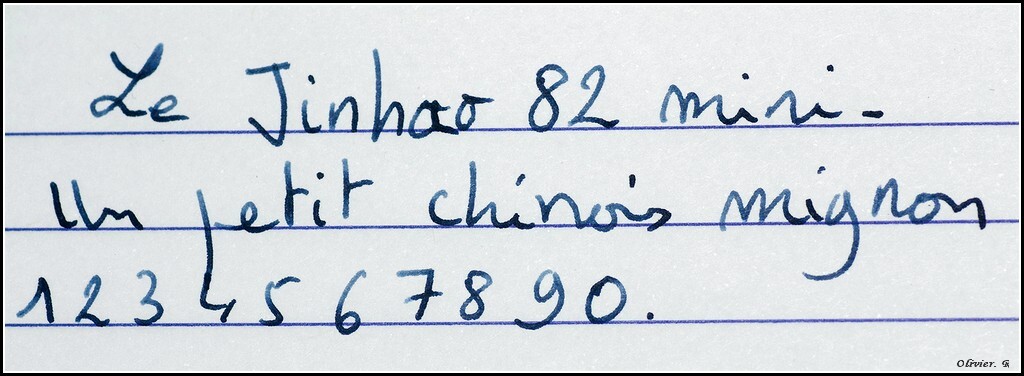 Le Jinhao 82 mini-
Un petit chinois mignon
1 2 3 4 5 6 7 8 9 0.
Olivier. R